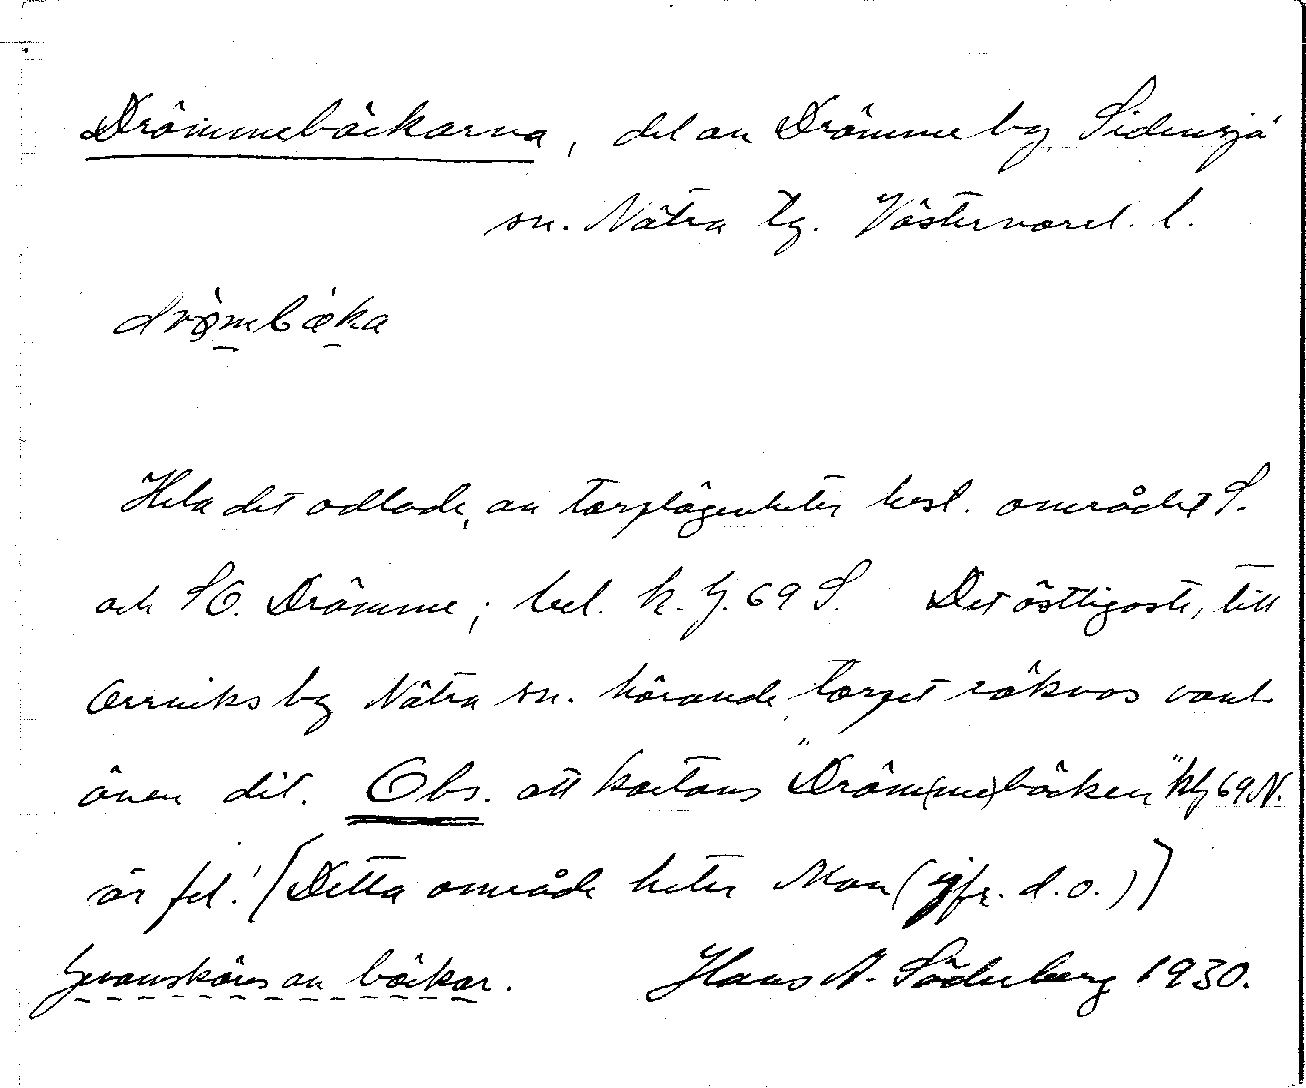 Drömmebäckarna, del av Drömme by Sidensjö
sn. Nätra tg. Västernorrl. l.
drömbäka
Hela det odlade, av torplägenheter best. området S.
och SO. Drömme; bel. k. bl. 69 S. Det östligaste, till
Orrviks by Nätra sn. hörande, torpet räknas vanl.
även dit. Obs. att kartans "Dröm(me)bäcken" kbl 69 N.
är fel! (Detta område heter Mon (jfr. d. o.))
Genomskäres av bäckar. Hans A. Söderberg 1930.